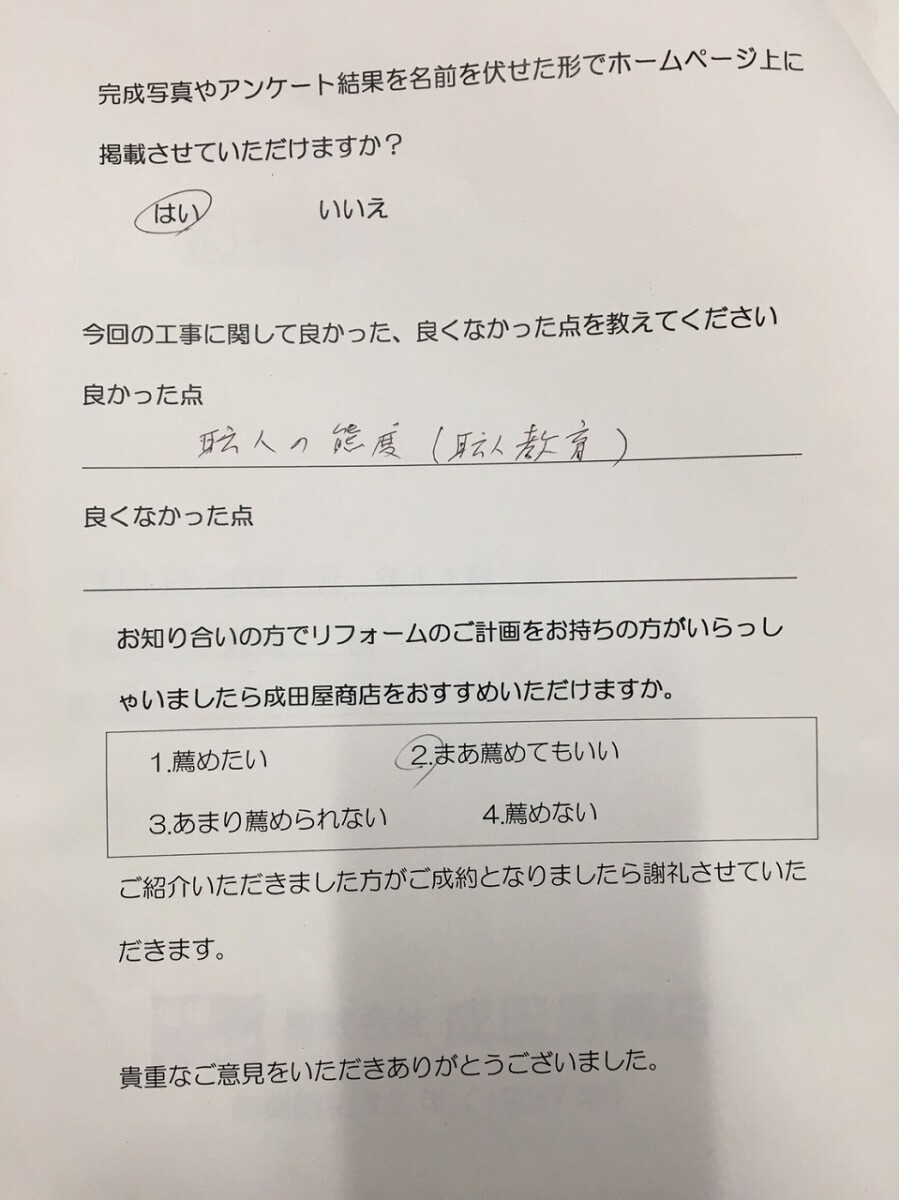 完成写真やアンケート結果を名前を伏せた形でホームページ上に
掲載させていただけますか？
はい いいえ
今回の工事に関して良かった、良くなかった点を教えてください
良かった点
職人の態度(職人教育)
良くなかった点
お知り合いの方でリフォームのご計画をお持ちの方がいらっし
ゃいましたら成田屋商店をおすすめいただけますか。
1.薦めたい 2.まあ薦めてもいい
3.あまり薦められない 4.薦めない
ご紹介いただきました方がご成約となりましたら謝礼させていた
だきます。
貴重なご意見をいただきありがとうございました。